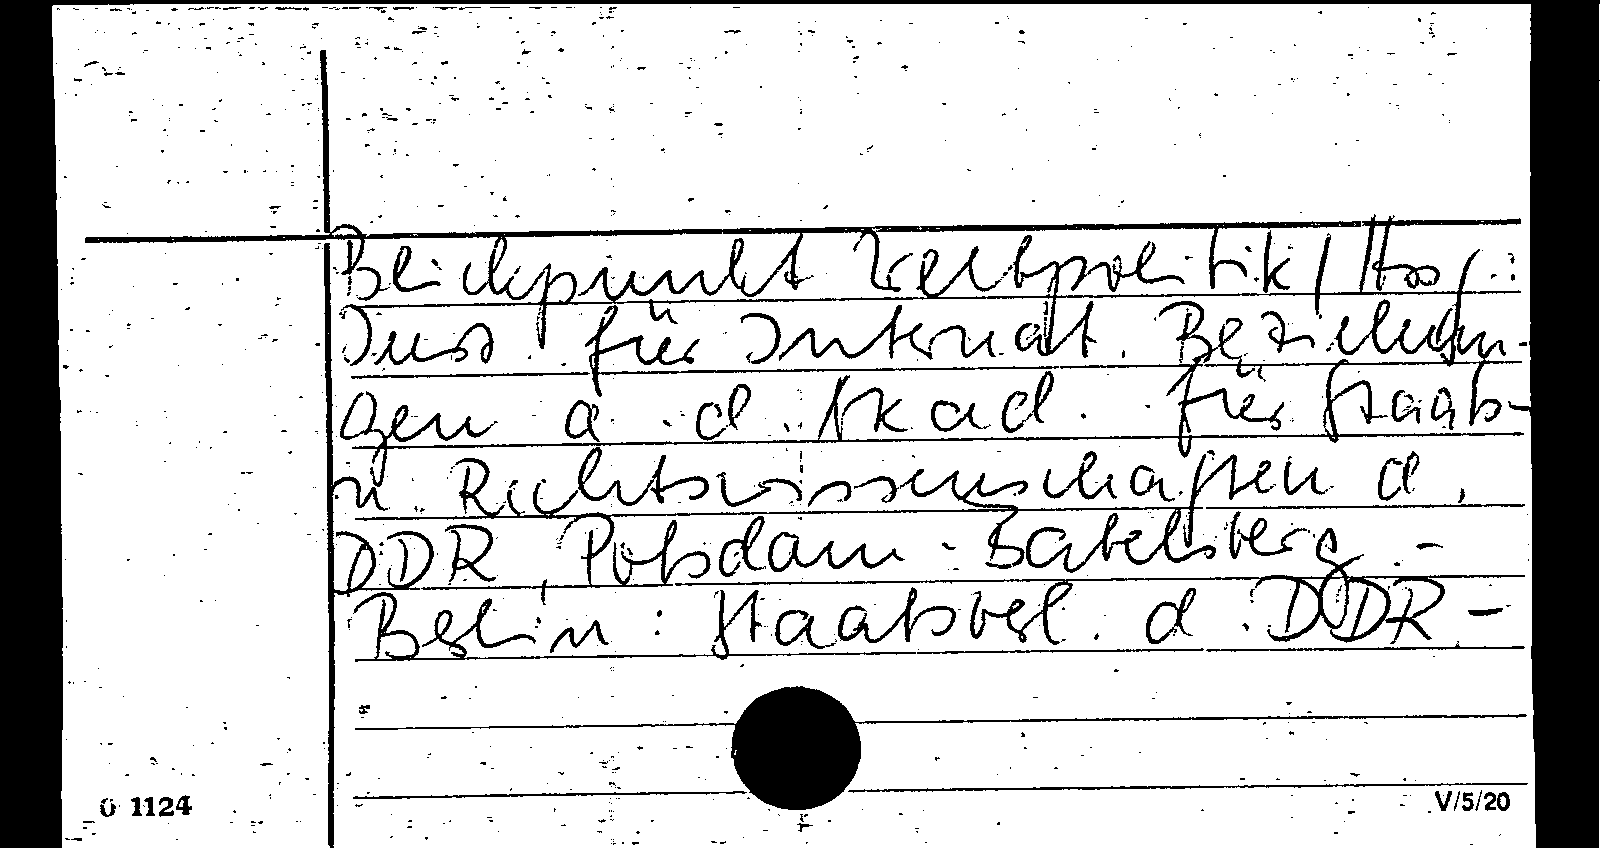 Blickpunkt Weltpolitik / Hrsg.:
Inst. für Internat. Beziehun-
gen a. d. Akad. für Staats-
u. Rechtswissenschaften d.
DDR, Potsdam-Babelsberg. -
Berlin : Staatsverl. d. DDR -
0 1124
V/5/20